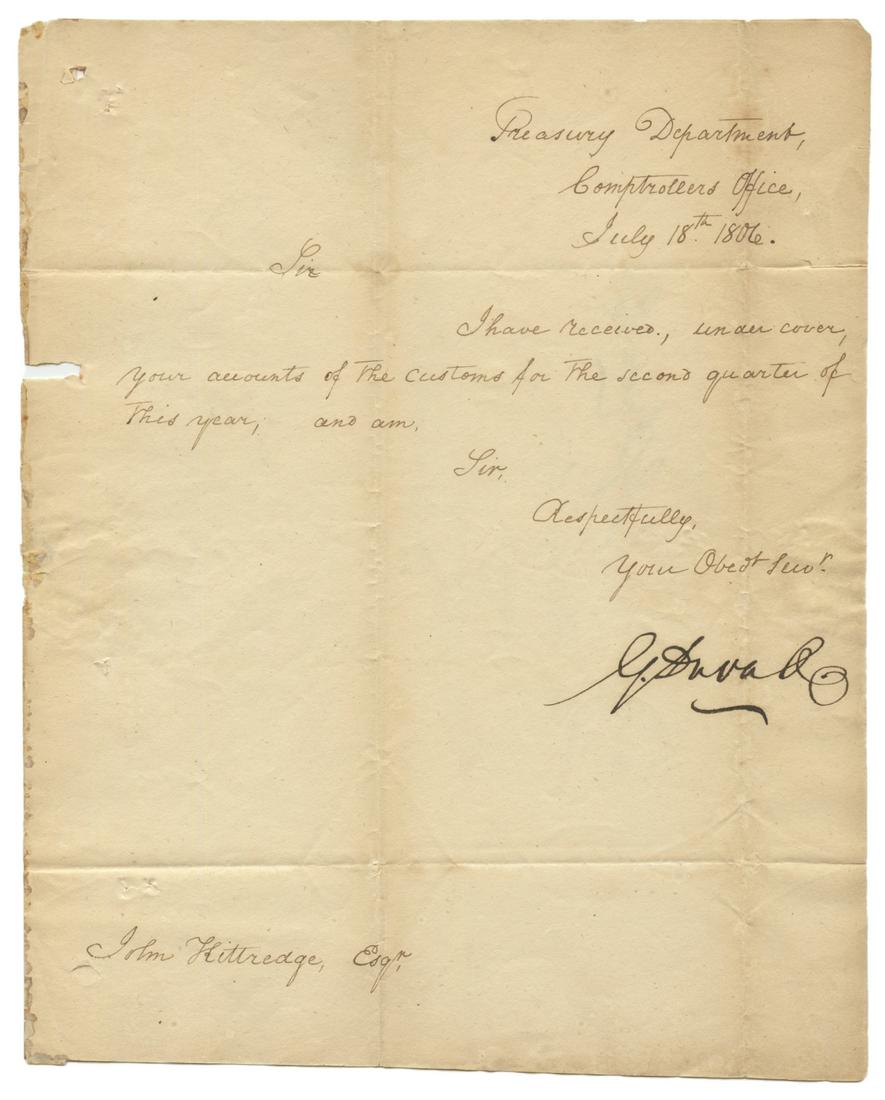 Treasury Department,
Comptrollers Office,
July 18th. 1806.
Sir
I have received., under cover,
your accounts of the customs for the second quarter of
this year, and am,
Sir,
Respectfully,
Your Obedt Servr.
G. Duvall
John Kittredge, Esqr.